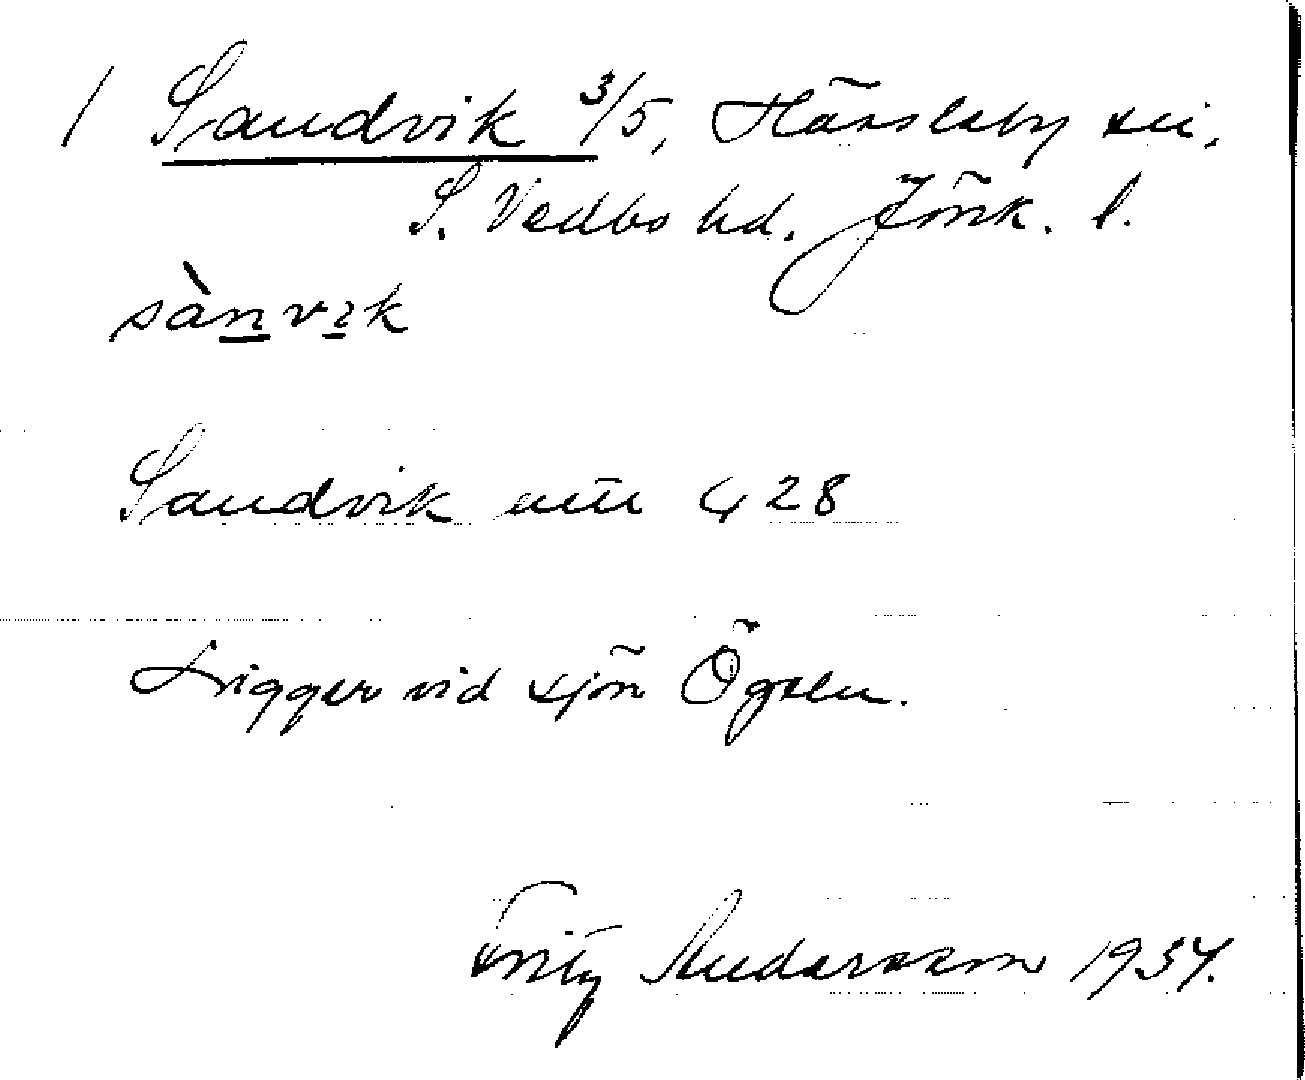 1 Sandvik 3/5, Hässleby sn,
S. Vedbo hd. Jönk. l.
sànvik
Sandvik nu 428
Ligger vid sjön Ögeln.
Fritz Andersson 1934.